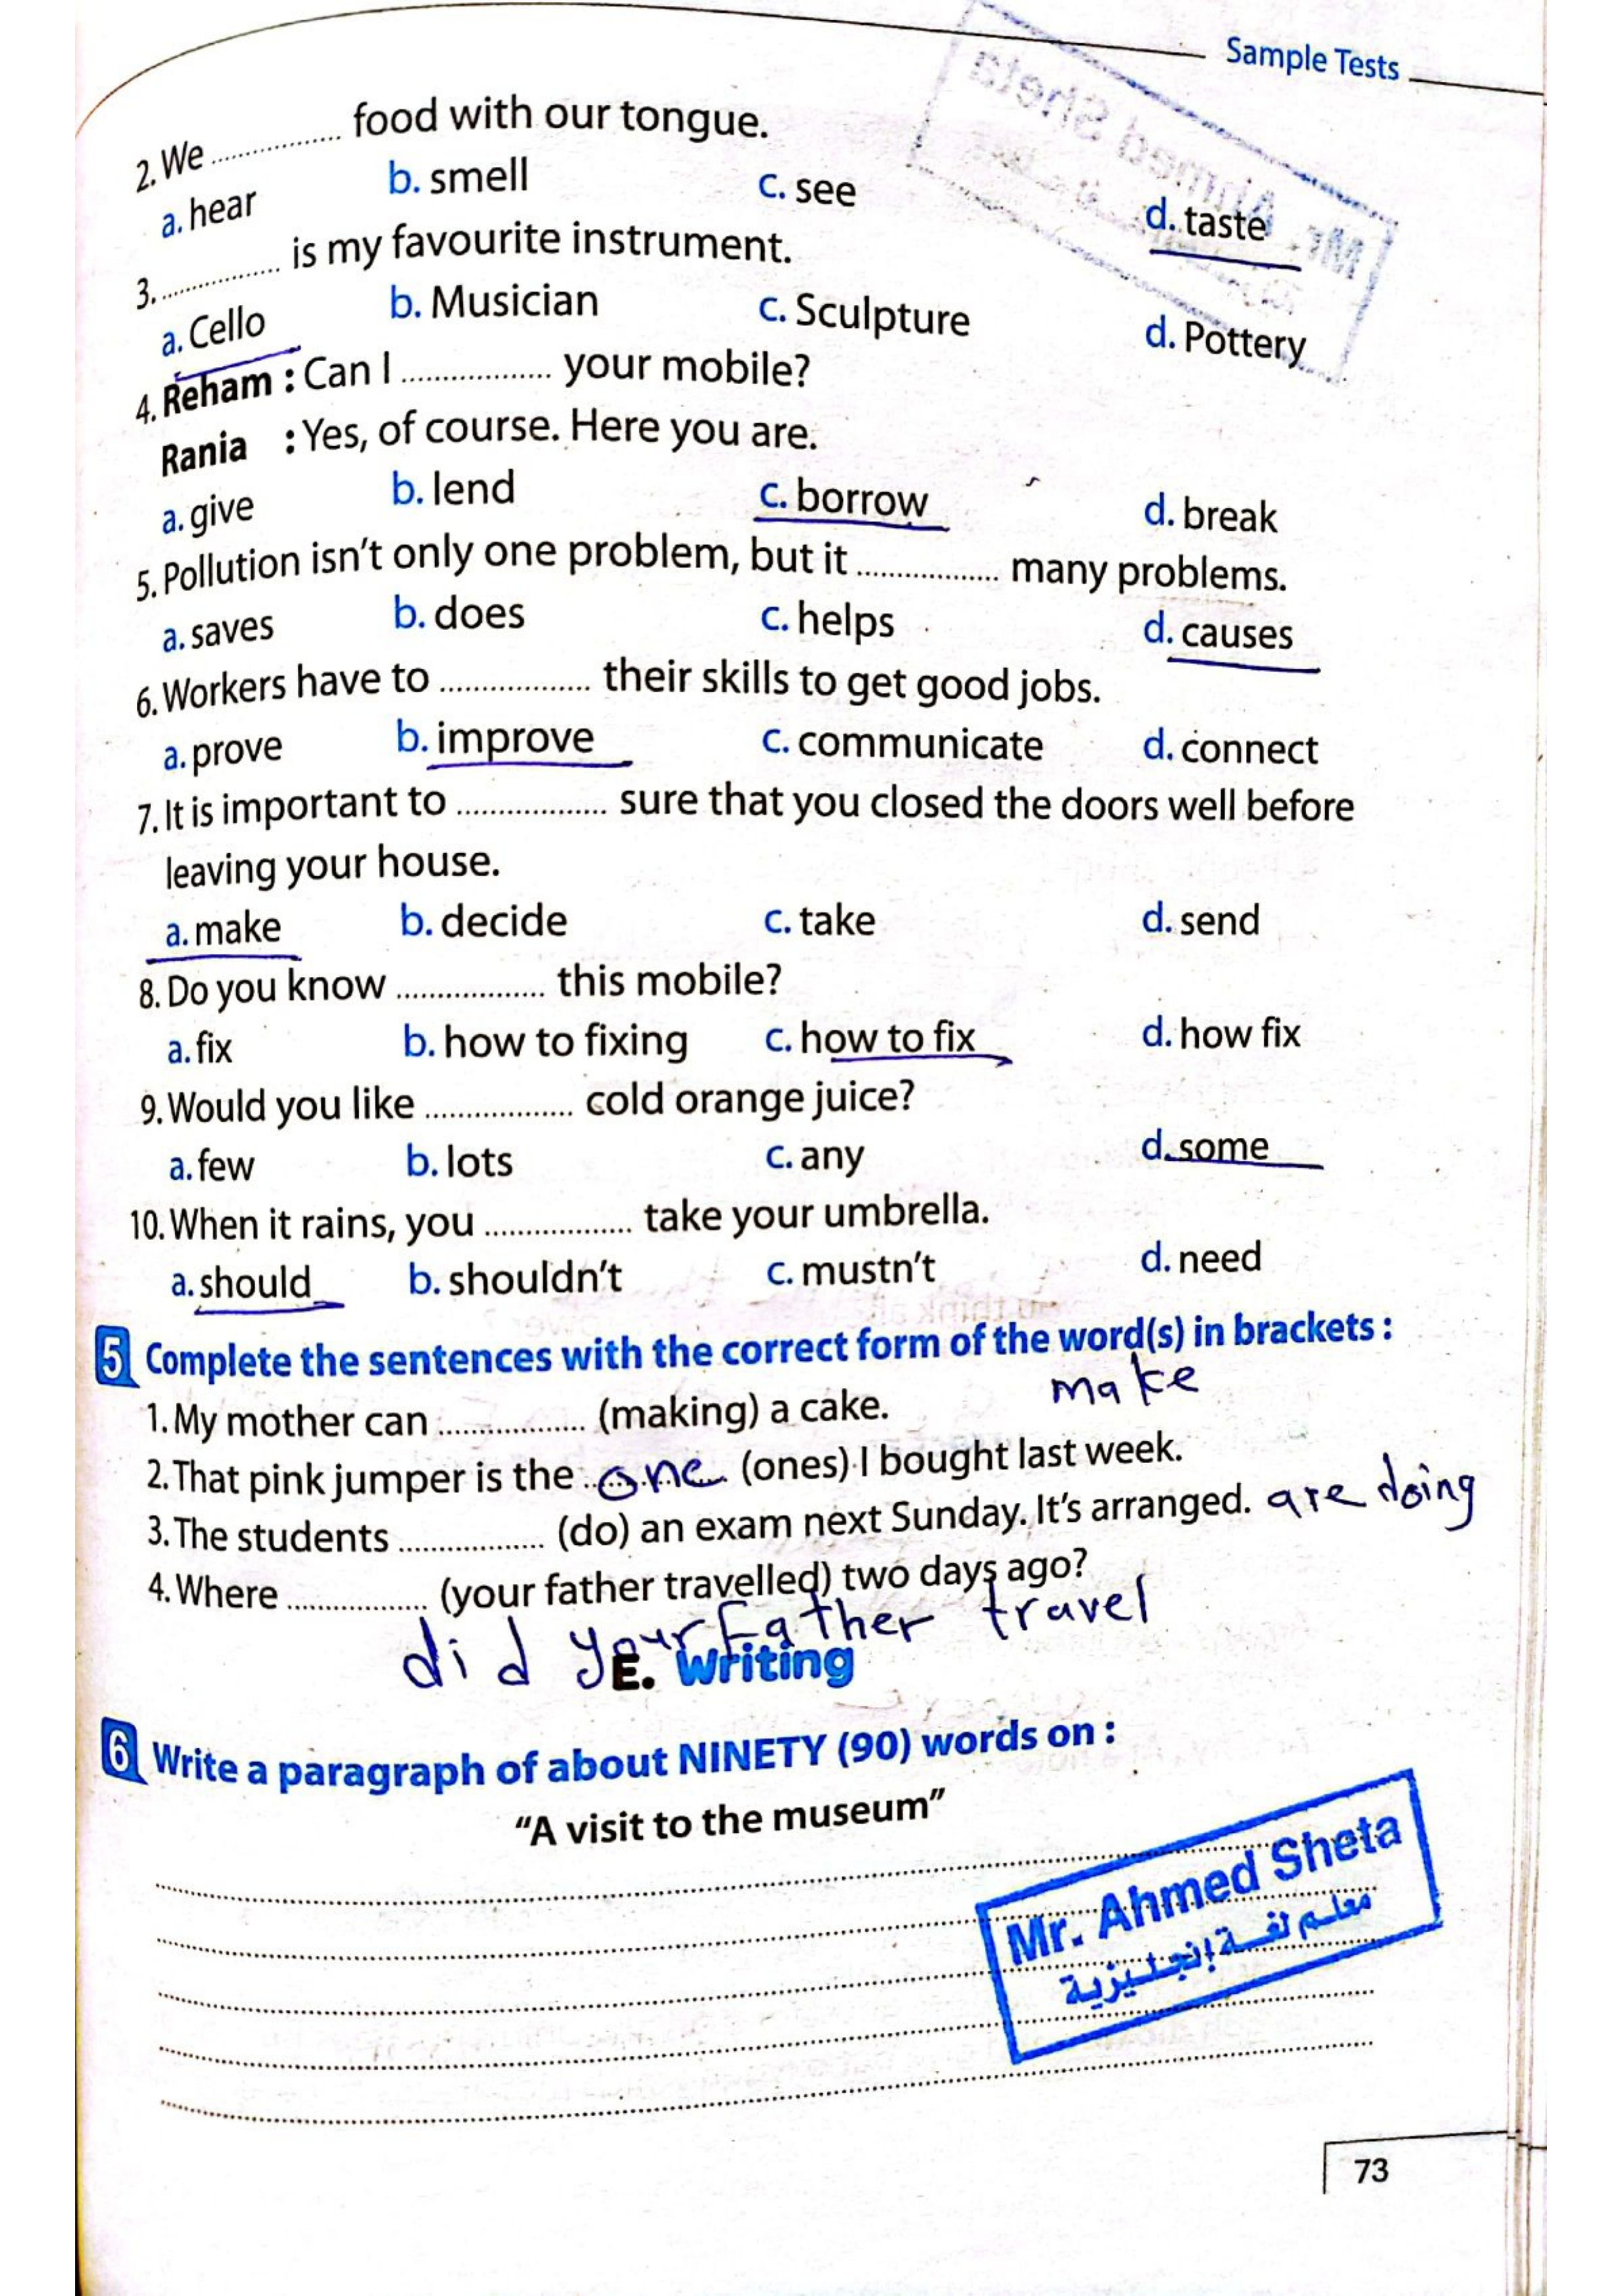 Sample Tests
2. We ................ food with our tongue.
a. hear b. smell c. see d. taste
3. ................ is my favourite instrument.
a. Cello b. Musician c. Sculpture d. Pottery
4. Reham : Can I ................ your mobile?
Rania : Yes, of course. Here you are.
a. give b. lend c. borrow d. break
5. Pollution isn't only one problem, but it ................ many problems.
a. saves b. does c. helps d. causes
6. Workers have to ................ their skills to get good jobs.
a. prove b. improve c. communicate d. connect
7. It is important to ................ sure that you closed the doors well before
leaving your house.
a. make b. decide c. take d. send
8. Do you know ................ this mobile?
a. fix b. how to fixing c. how to fix d. how fix
9. Would you like ................ cold orange juice?
a. few b. lots c. any d. some
10. When it rains, you ................ take your umbrella.
a. should b. shouldn't c. mustn't d. need
5 Complete the sentences with the correct form of the word(s) in brackets :
1. My mother can ................ (making) a cake. make
2. That pink jumper is the one (ones) I bought last week.
3. The students ................ (do) an exam next Sunday. It's arranged. are doing
4. Where ................ (your father travelled) two days ago?
did your Father travel
E. Writing
6 Write a paragraph of about NINETY (90) words on :
"A visit to the museum"
Mr. Ahmed Sheta
معلم لغة إنجليزية
73